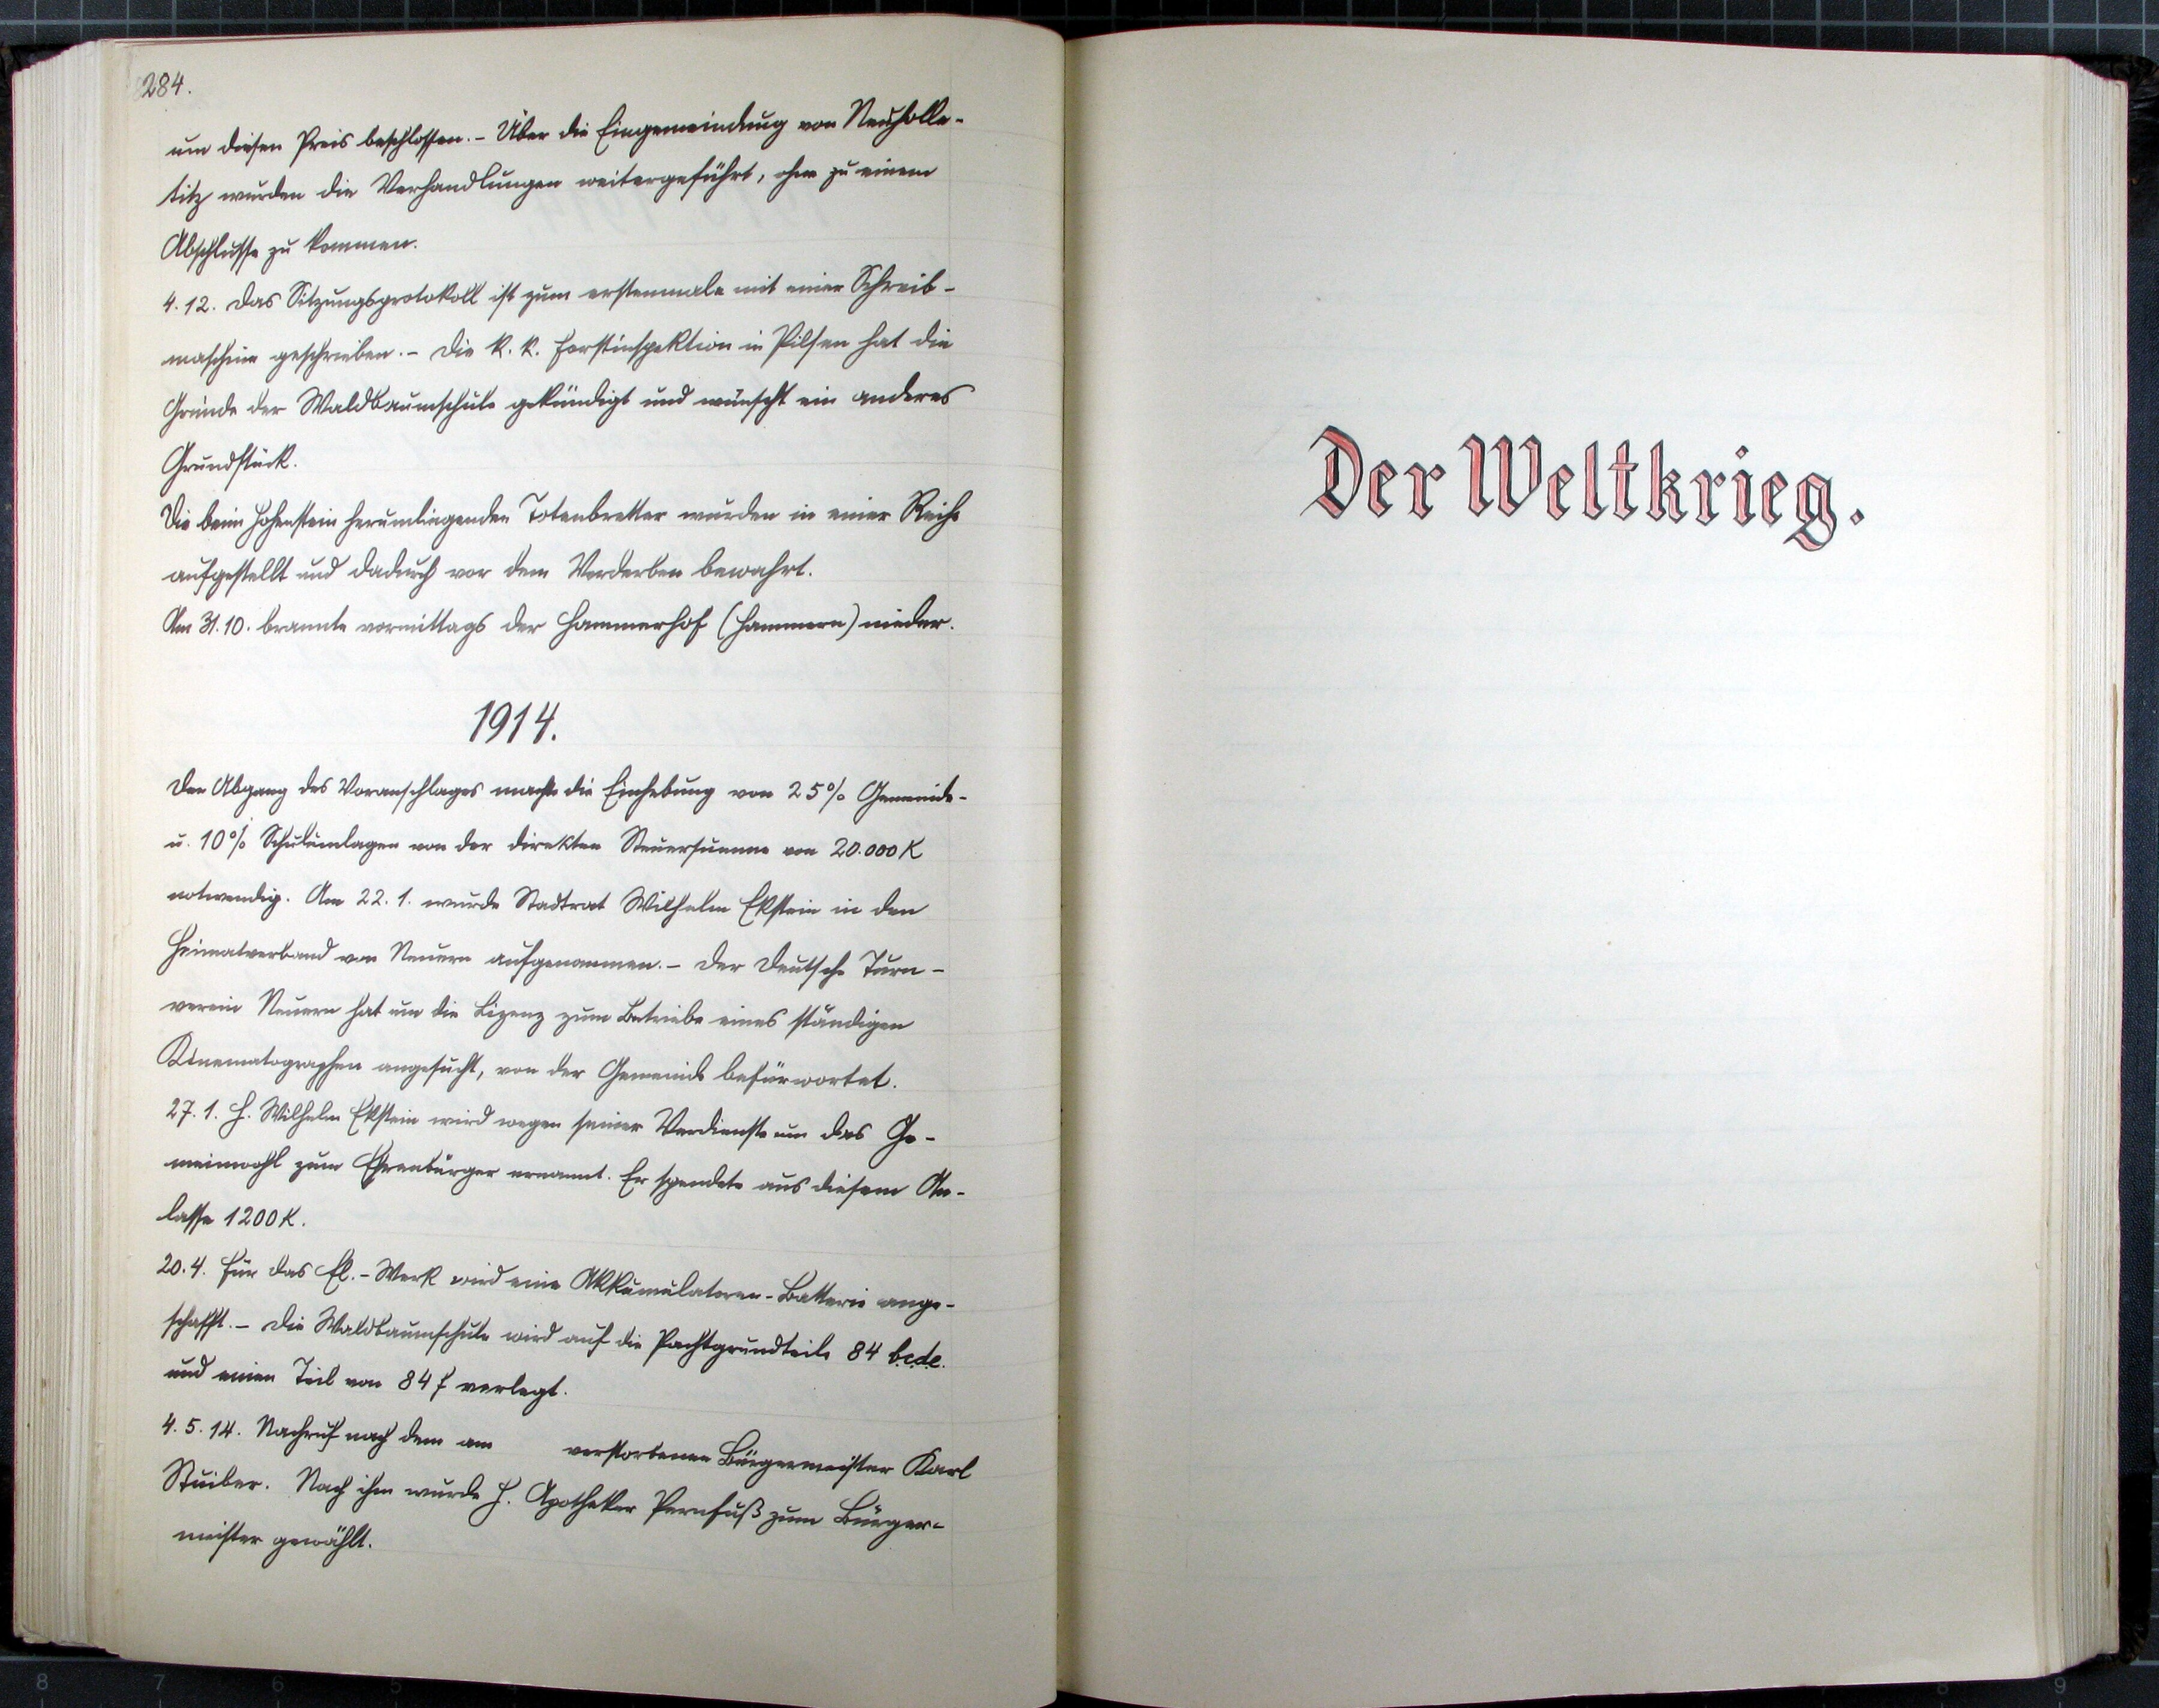 284.
um diesen Preis beschlossen. - Über die Eingemeindung von Neuhollе-
titz wurden die Verhandlungen weitergeführt, ohne zu einem
Abschlusse zu kommen.
4. 12. Das Sitzungsprotokoll ist zum erstenmale mit einer Schreib-
maschine geschrieben. - Die k. k. Forstinspektion in Pilsen hat die
Gründe der Waldbaumschule gekündigt und wünscht ein anderes
Grundstück.
Die beim Hohenstein herumliegenden Totenbretter wurden in einer Reihe
aufgestellt und dadurch vor dem Verderben bewahrt.
Am 31. 10. brannte vormittags der Hammerhof (Hammern) nieder.
1914.
Der Abgang des Voranschlages machte die Einhebung von 25% Gemeinde-
u. 10% Schulumlagen von der direkten Steuersumme von 20.000 K
notwendig. Am 22. 1. wurde Stadtrat Wilhelm Ekstein in den
Heimatverband von Neuern aufgenommen. - Der Deutsche Turn-
verein Neuern hat um die Lizenz zum Betriebe eines ständigen
Kinematographen angesucht, von der Gemeinde befürwortet.
27. 1. H. Wilhelm Ekstein wird wegen seiner Verdienste um das Ge-
meinwohl zum Ehrenbürger ernannt. Er spendete aus diesem An-
lasse 1200 K.
20. 4. Für das El.-Werk wird eine Akkumulatoren-Batterie ange-
schafft. - Die Waldbaumschule wird auf die Pachtgrundteile 84 b.c.d.e.
und einen Teil von 84 f verlegt.
4. 5. 14. Nachruf nach dem am verstorbenen Bürgermeister Karl
Stuiber. Nach ihm wurde H. Apotheker Pernfuß zum Bürger-
meister gewählt.
Der Weltkrieg.
8 7 6 5
8 9